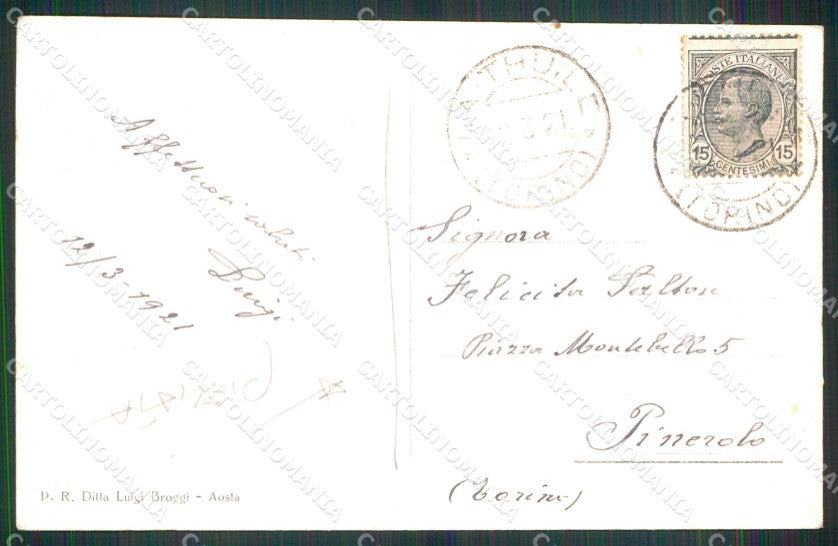 Affettuosi saluti
Luigi
12/3-1921
P. R. Ditta Luigi Broggi - Aosta
LA THUILE
3.21
(TORINO)
POSTE ITALIANE
15 15
CENTESIMI
(TORINO)
Signora
Felicita
Piazza Montebello 5
Pinerolo
(Torino)
CARTOLINOMANIA